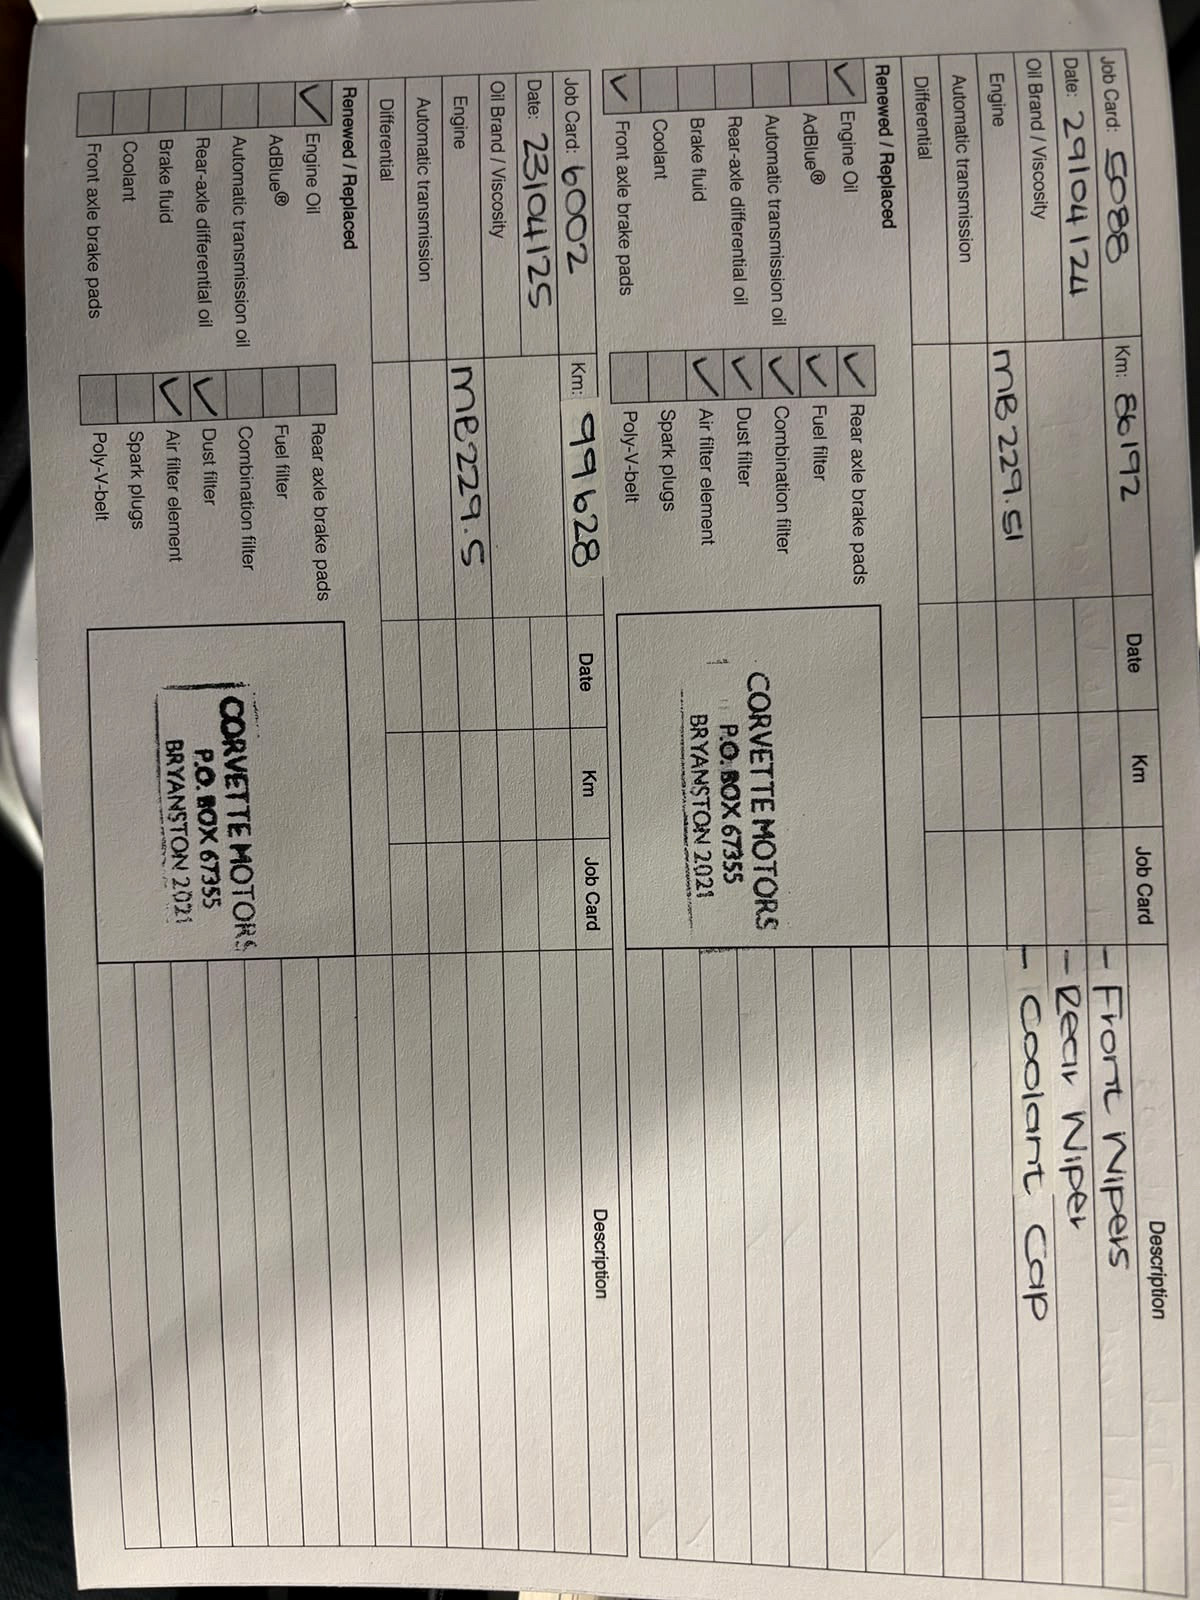 Job Card: 5088 Km: 86192 Date Km Job Card Description
Date: 29/04/24 - Front Wipers
Oil Brand / Viscosity - Rear Wiper
Engine MB 229.51 - Coolant Cap
Automatic transmission
Differential
Renewed / Replaced
✓ Engine Oil ✓ Rear axle brake pads
AdBlue® ✓ Fuel filter
Automatic transmission oil ✓ Combination filter
Rear-axle differential oil ✓ Dust filter
Brake fluid ✓ Air filter element
Coolant Spark plugs
✓ Front axle brake pads Poly-V-belt
CORVETTE MOTORS
P.O. BOX 67355
BRYANSTON 2021
Job Card: 6002 Km: 99628 Date Km Job Card Description
Date: 23/04/25
Oil Brand / Viscosity
Engine MB229.5
Automatic transmission
Differential
Renewed / Replaced
✓ Engine Oil Rear axle brake pads
AdBlue® Fuel filter
Automatic transmission oil Combination filter
Rear-axle differential oil ✓ Dust filter
Brake fluid ✓ Air filter element
Coolant Spark plugs
Front axle brake pads Poly-V-belt
CORVETTE MOTORS
P.O. BOX 67355
BRYANSTON 2021